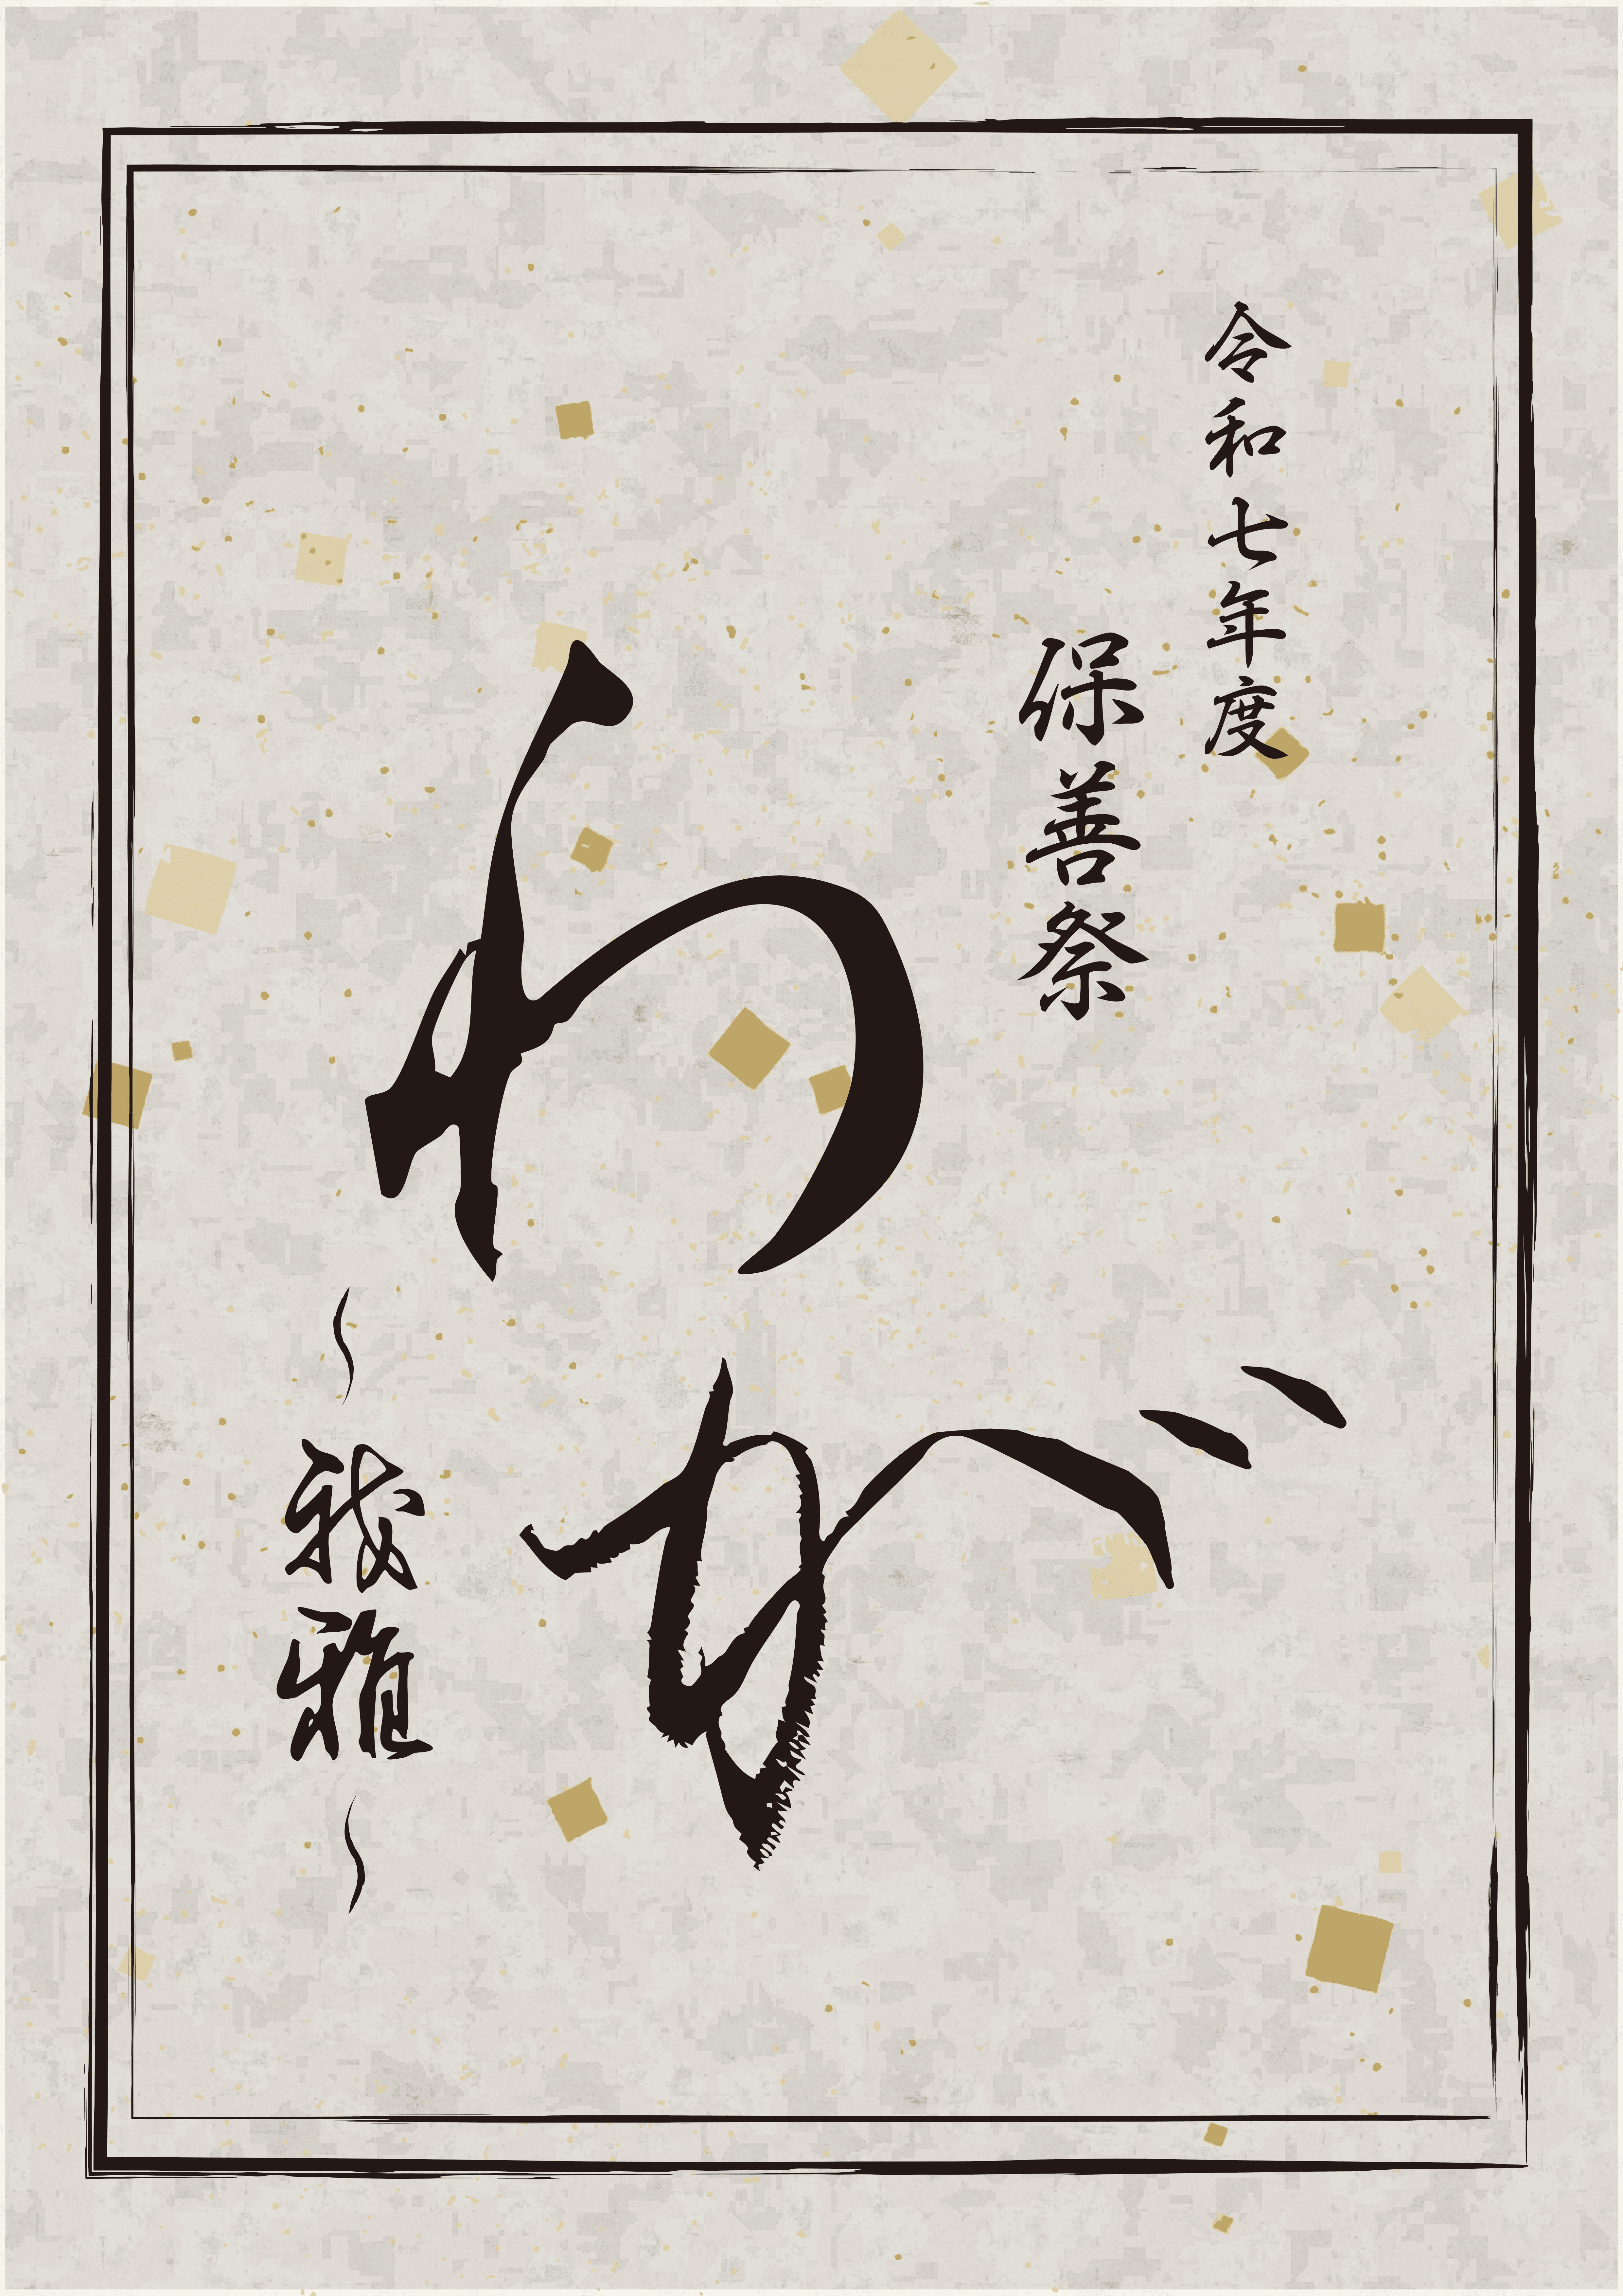 令和七年度
保善祭
わが
～我雅～